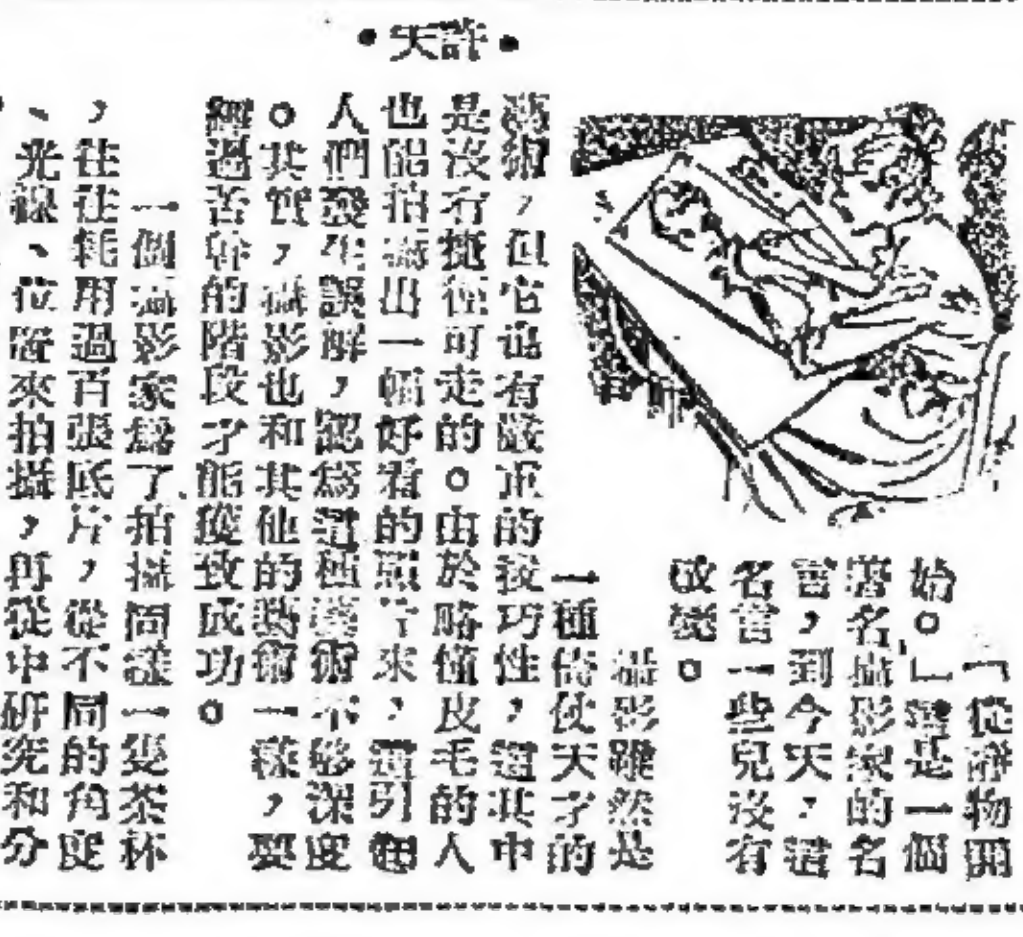 •許天•
「從靜物開
始。」這是一個
著名攝影家的名
言，到今天，這
名言一些兒沒有
改變。
攝影雖然是
一種倚仗天才的
藝術，但它也有嚴正的技巧性，這其中
是沒有捷徑可走的。由於略懂皮毛的人
也能拍攝出一幅好看的照片來，還引起
人們發生誤解，認爲這種藝術不够深度
。其實，攝影也和其他的藝術一樣，要
經過苦幹的階段才能獲致成功。
一個攝影家爲了拍攝同樣一隻茶杯
，往往耗用過百張底片，從不同的角度
、光線、位置來拍攝，再從中研究和分